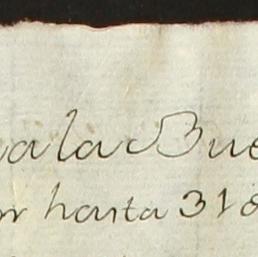 ala Bue
or hasta 31 8